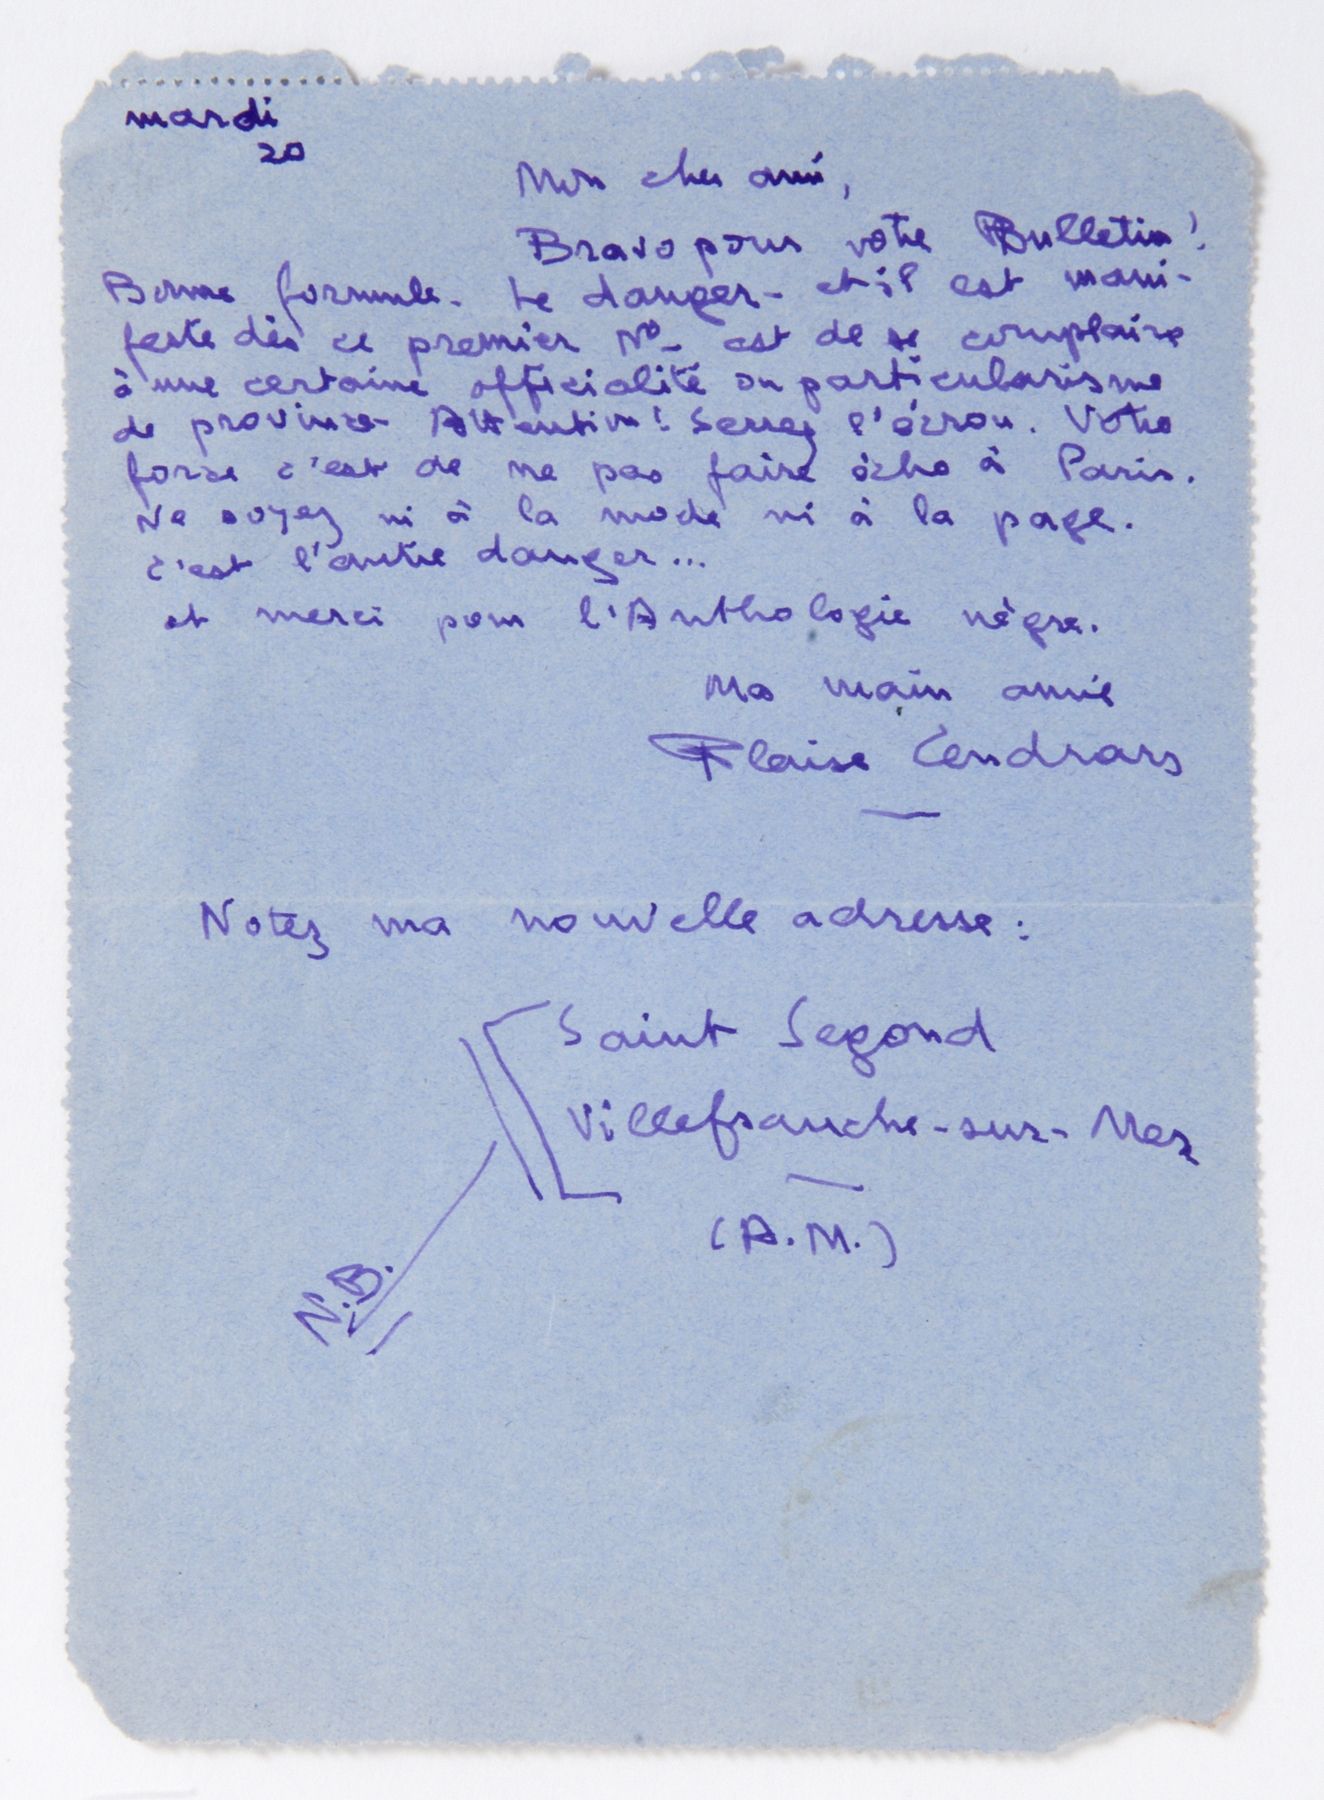 mardi
20
Mon cher ami,
Bravo pour votre Bulletin!
Bonne formule. Le danger - et il est mani-
feste dès ce premier Nº - est de se complaire
à une certaine officialité ou particularisme
de province. Attention! Serrez l'écrou. Votre
force c'est de ne pas faire écho à Paris.
Ne soyez ni à la mode ni à la page.
C'est l'autre danger...
et merci pour l'Anthologie nègre.
Ma main amie
Blaise Cendrars
Notez ma nouvelle adresse:
Saint Segond
Villefranche-sur-Mer
(A.M.)
N.B.